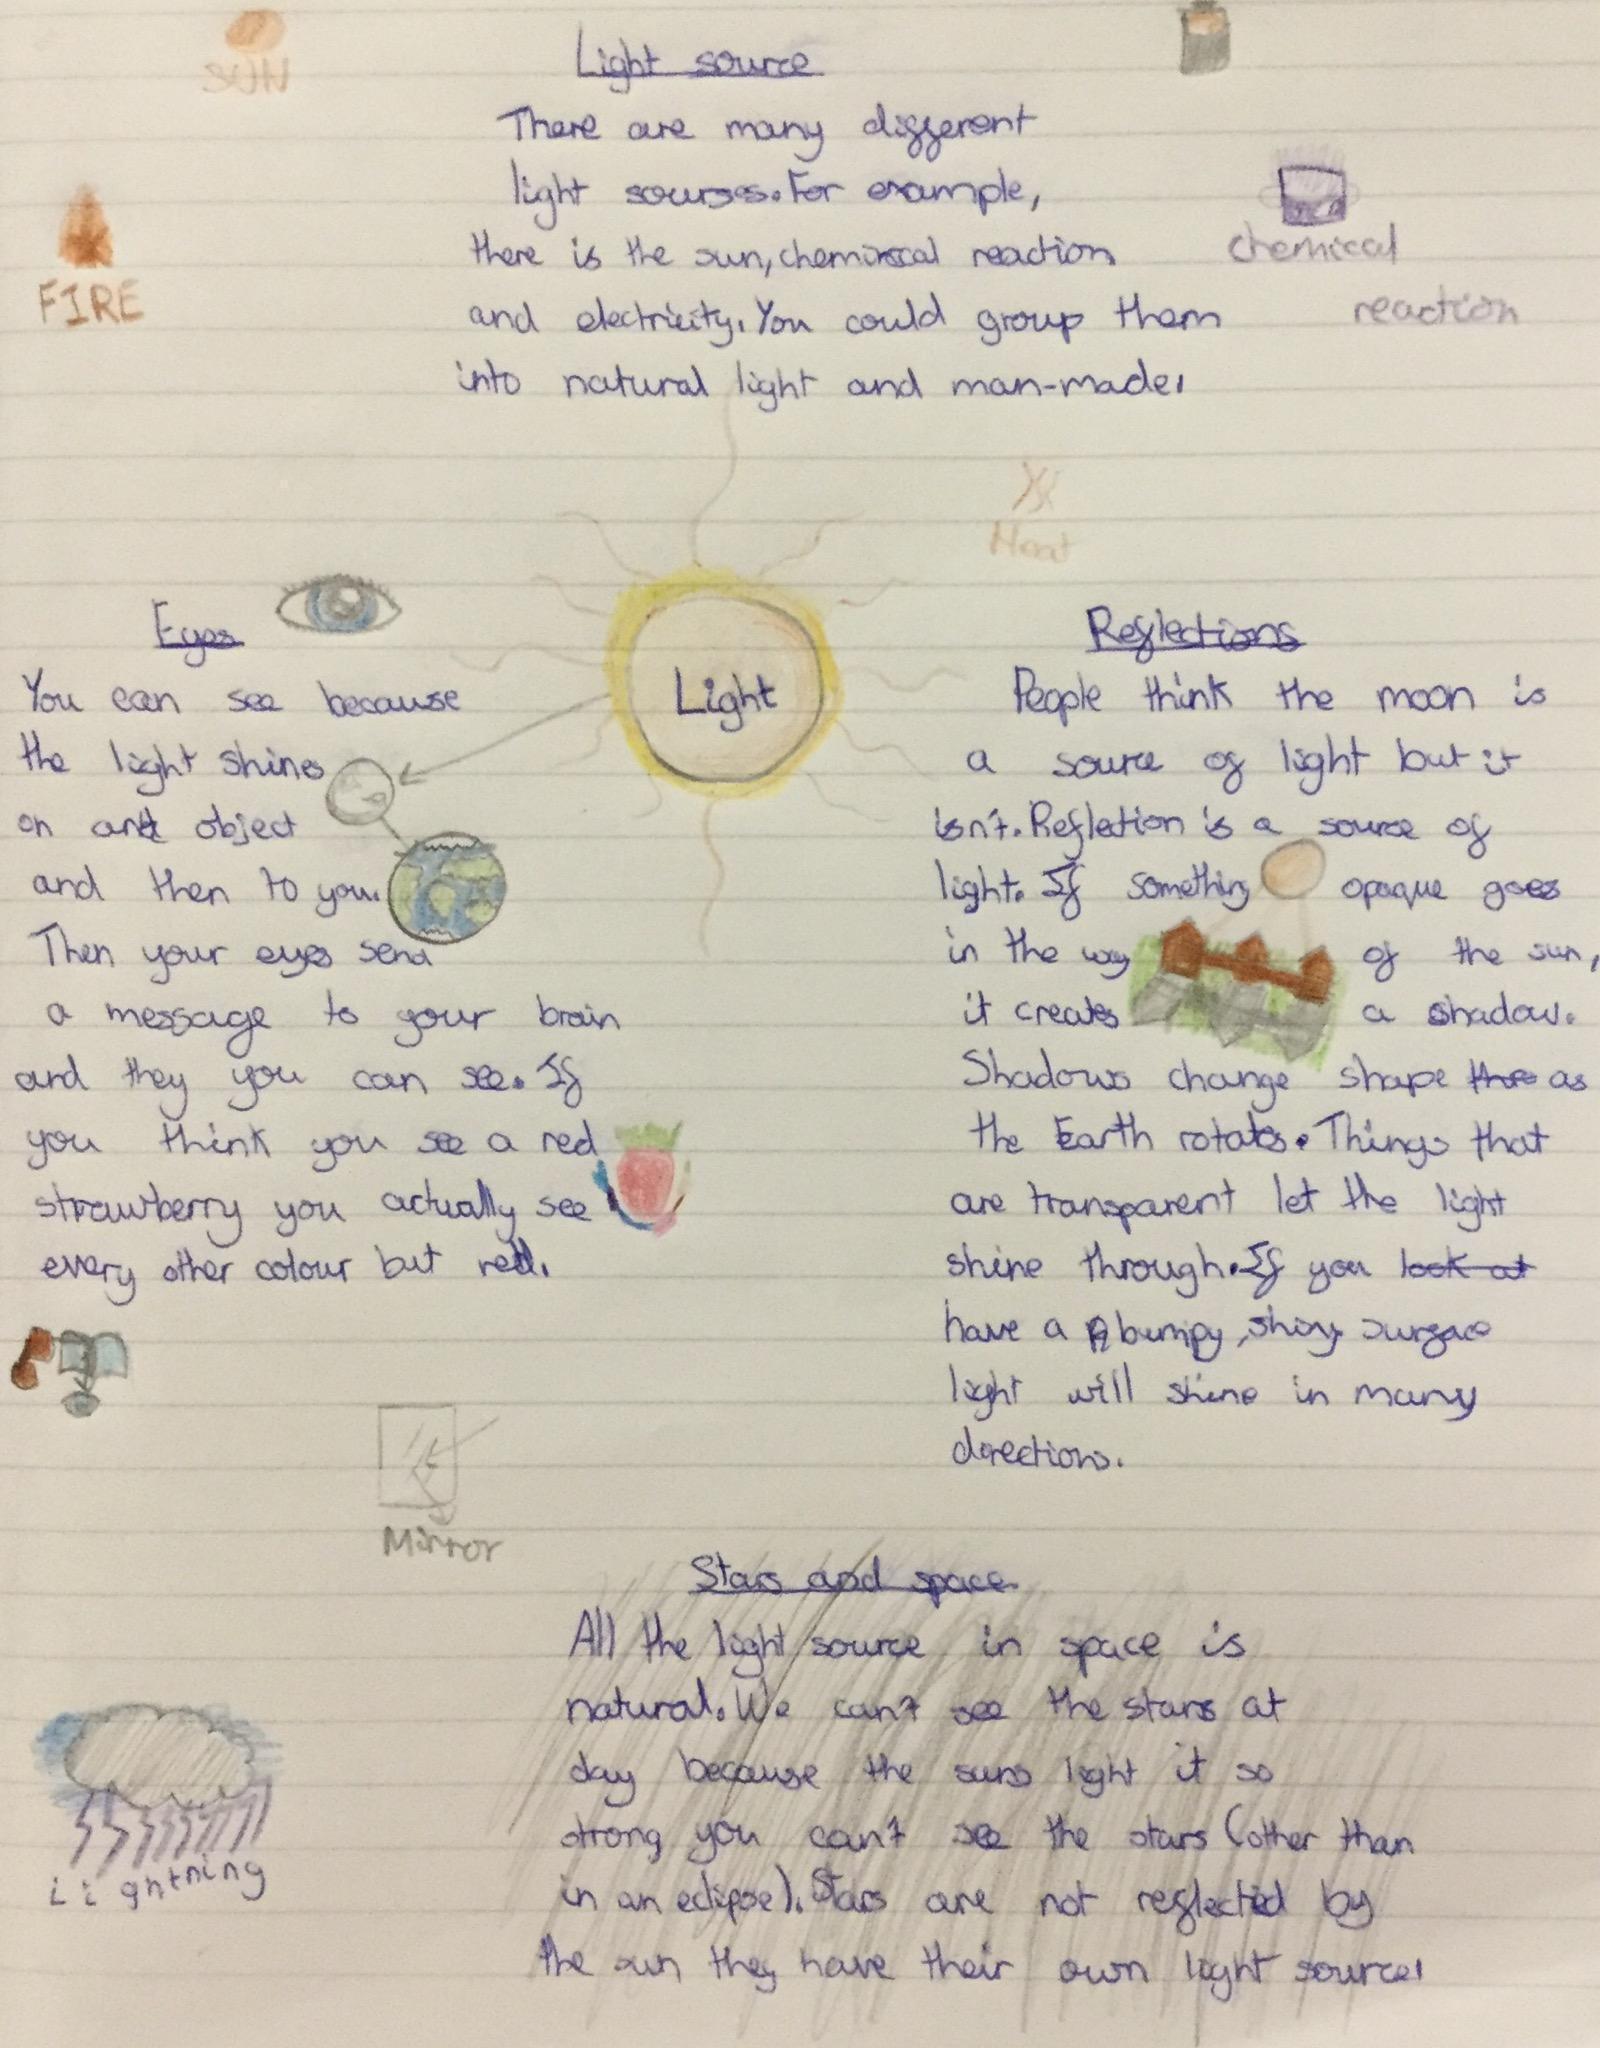 SUN
Light source
There are many different
light sourses. For example,
there is the sun, chemical reaction
and electricity. You could group them
into natural light and man-made.
FIRE
chemical
reaction
Heat
Light
Eyes
You can see because
the light shines
on and object
and then to you.
Then your eyes send
a message to your brain
and they you can see. If
you think you see a red
strawberry you actually see
every other colour but red.
Mirror
Reflections
People think the moon is
a source of light but it
isn't. Reflection is a source of
light. If something opaque goes
in the way of the sun,
it creates a shadow.
Shadows change shape as
the Earth rotates. Things that
are transparent let the light
shine through. If you look at
have a bumpy, shiny surface
light will shine in many
directions.
Stars and space
All the light source in space is
natural. We can't see the stars at
day because the suns light it so
strong you can't see the stars (other than
in an eclipse). Stars are not reflected by
the sun they have their own light source.
Lightning